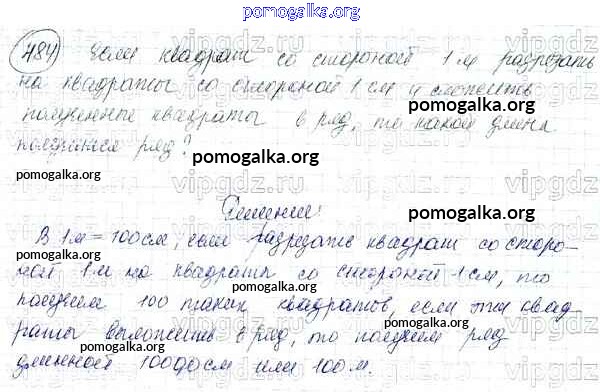 pomogalka.org
484) Если квадрат со стороной 1 м разрезать
на квадраты со стороной 1 см и сложить
pomogalka.org
полученные квадраты в ряд, то какой длины
получится ряд?
pomogalka.org
Решение:
pomogalka.org
В 1 м = 100 см, если разрезать квадрат со сторо-
ной 1 м на квадраты со стороной 1 см, то
pomogalka.org
получим 100 таких квадратов, если эти квад-
раты выложить в ряд, то получим ряд
pomogalka.org
pomogalka.org
длинной 10000 см или 100 м.